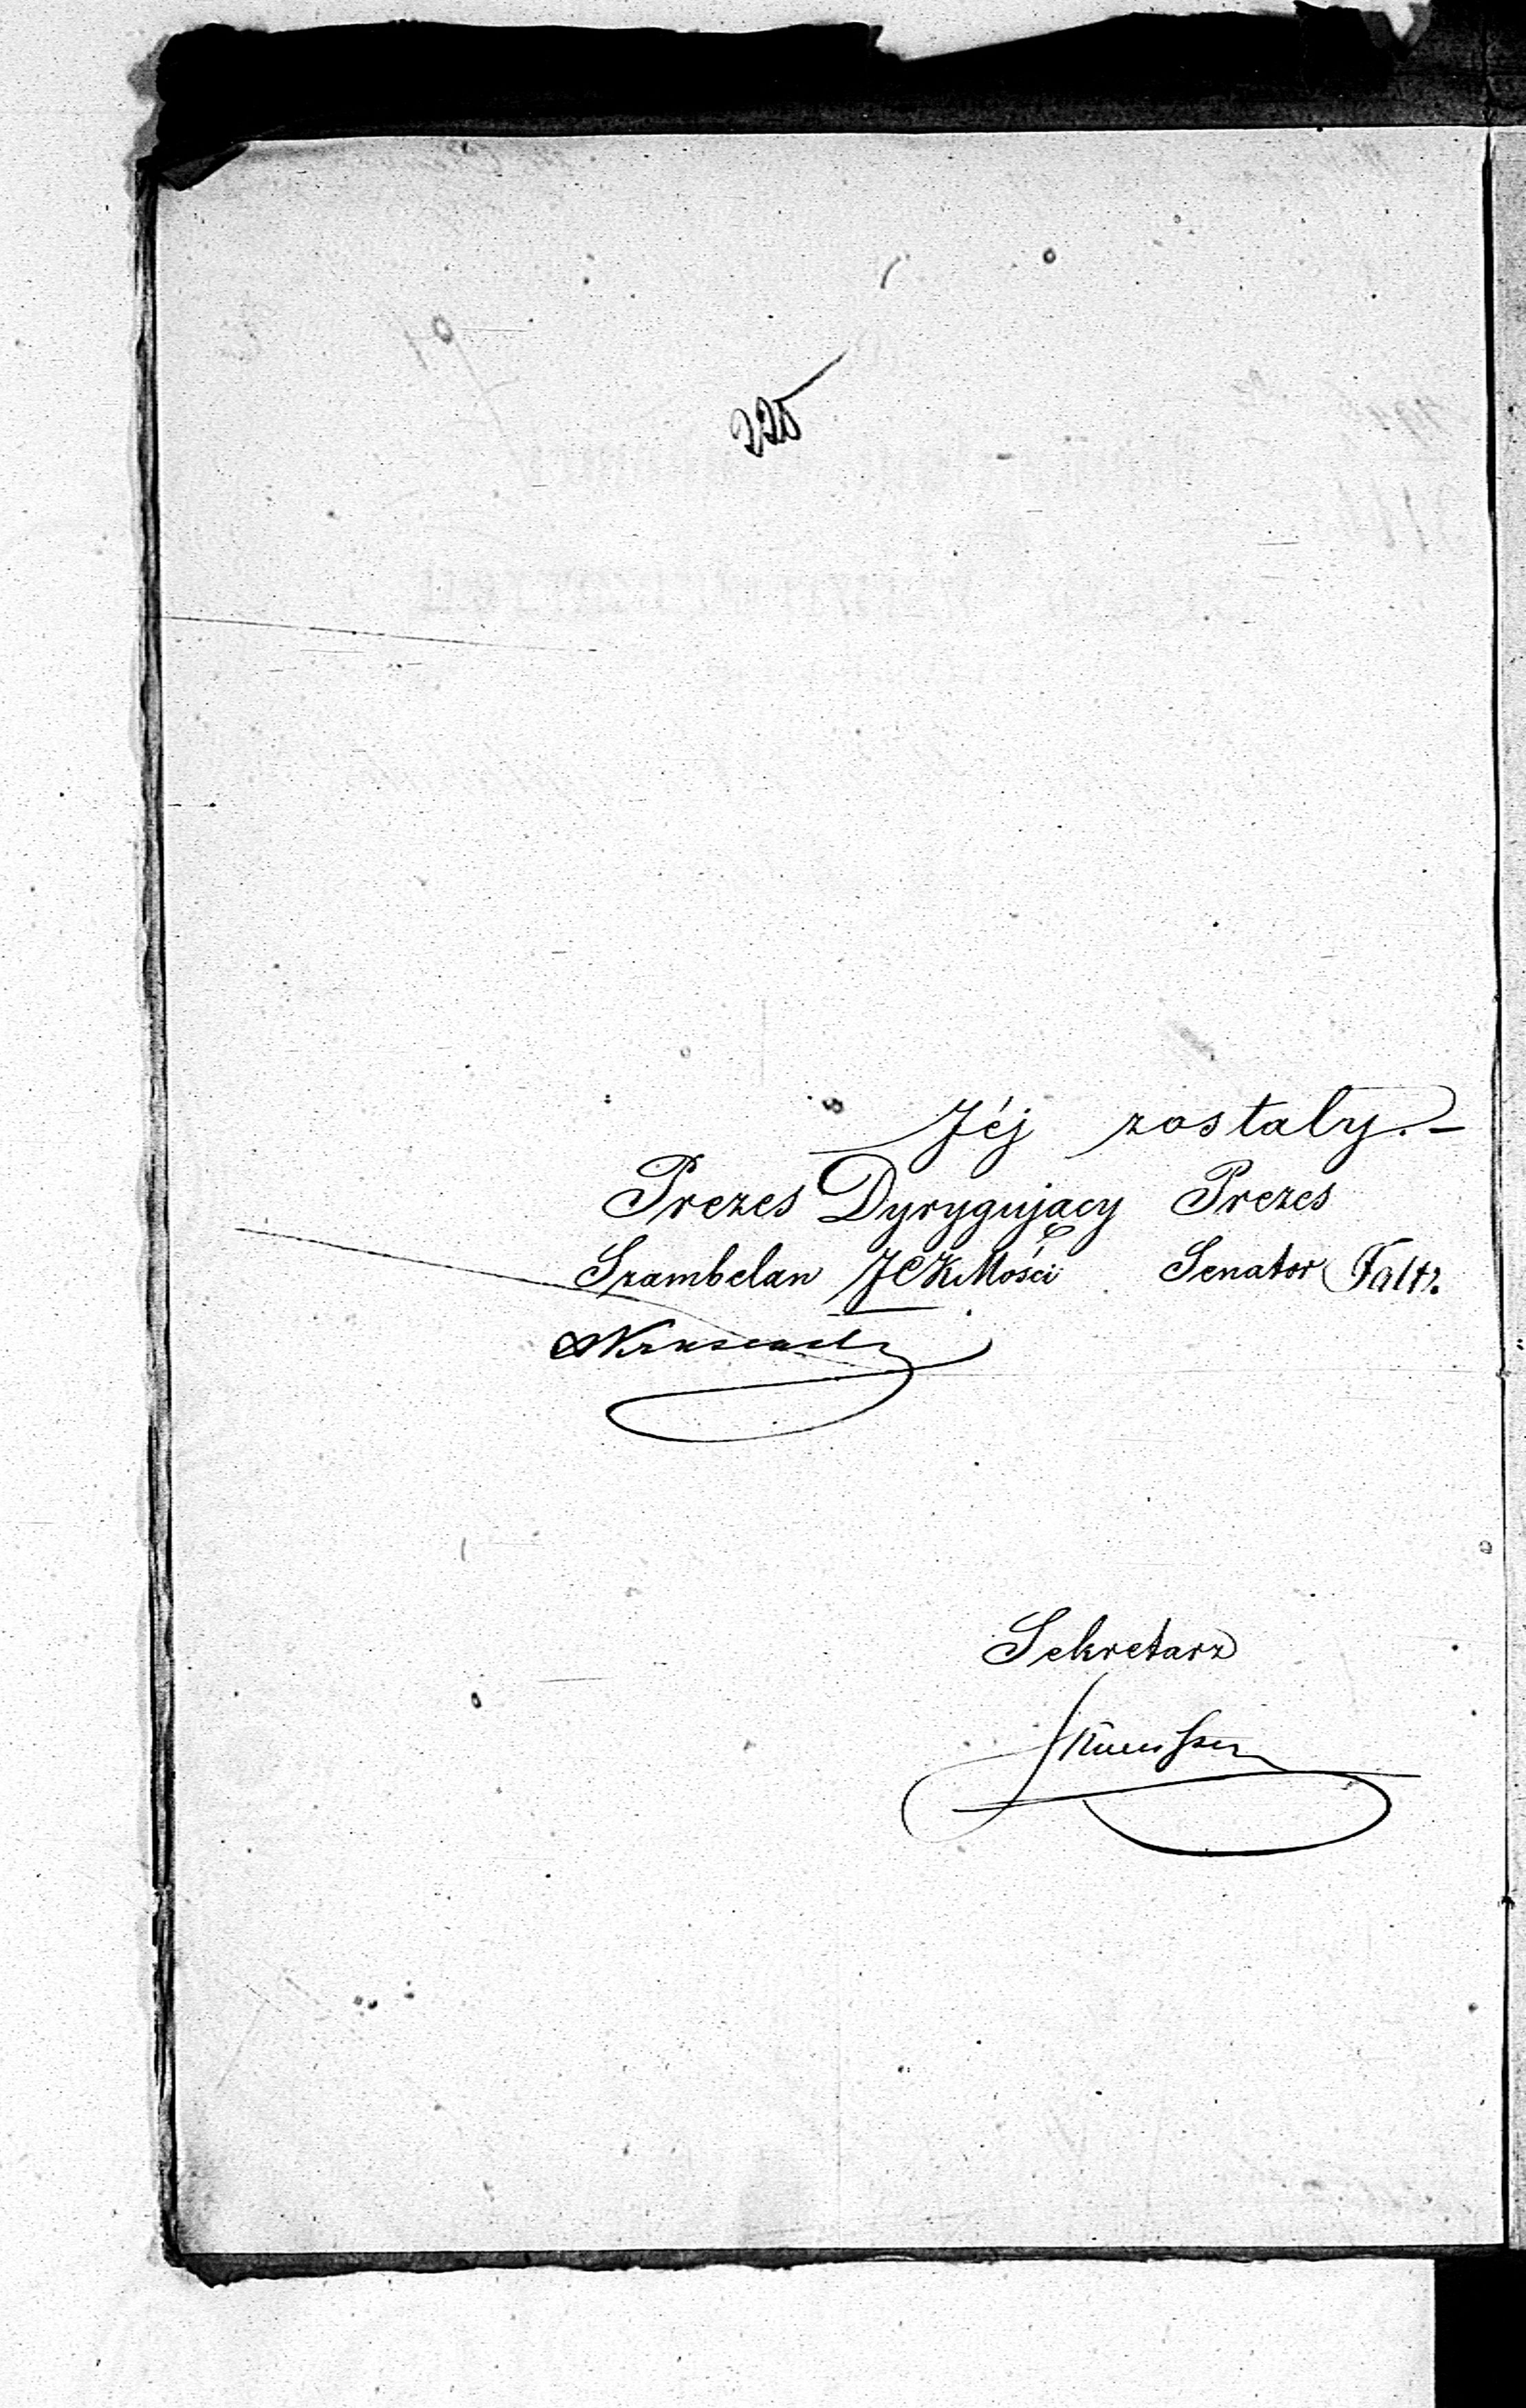 225
Jéj zostały.-
Prezes Dyrygujący Prezes
Szambelan JCKMości Senator Faltz.
Sekretarz